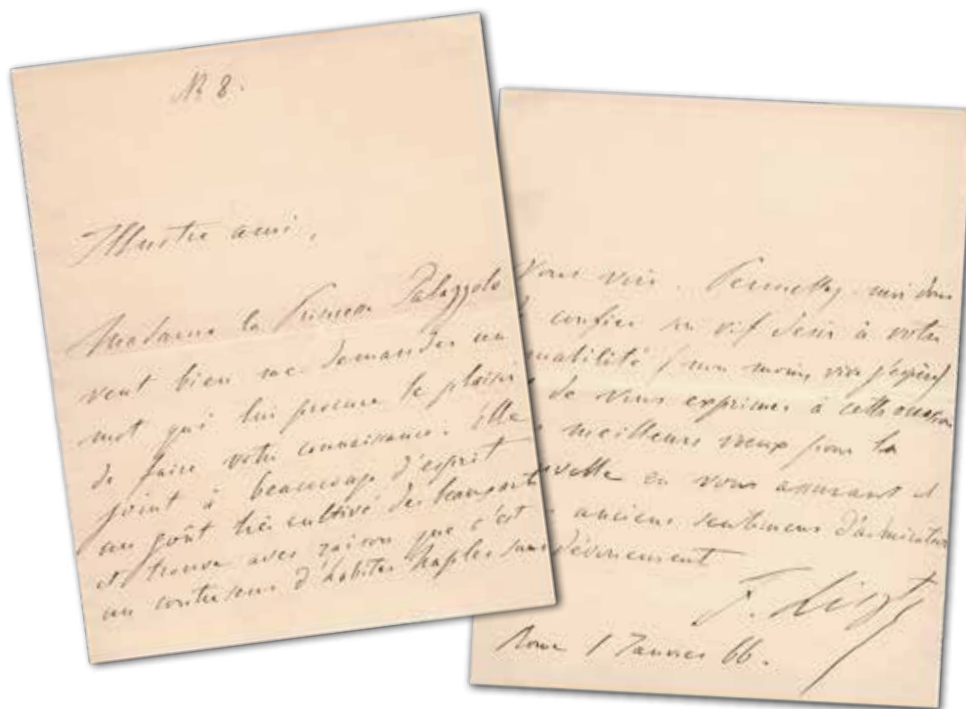 N 8.
Illustre ami,
Madame la Princesse Palazzolo
veut bien me demander un
mot qui lui procure le plaisir
de faire votre connaissance. Elle
joint à beaucoup d'esprit
un goût très cultivé des beaux arts
et trouve avec raison que c'est
un contresens d'habiter Naples sans
vous voir. Permettez-moi donc
confier son vif désir à votre
amabilité (non moins vive j'espère)
de vous exprimer à cette occasion
meilleurs vœux pour la
en vous assurant
anciens sentimens d'admiration
dévouement
F. Liszt
Rome 1 Janvier 66.